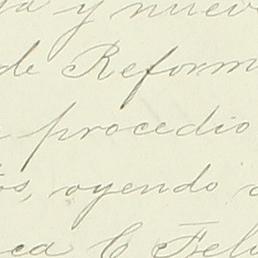 y nueve
de Reform
procedio
os, oyendo
ca C Feli